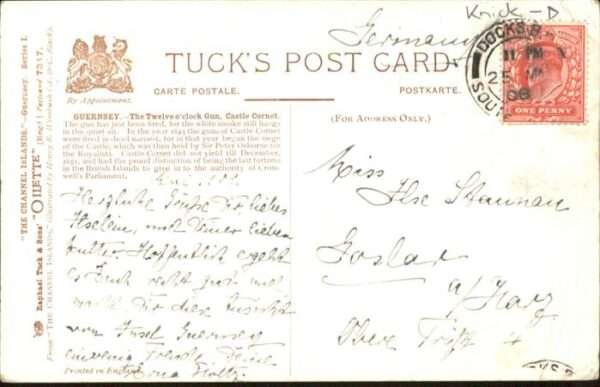 Knick-D
Germany
TUCK'S POST CARD
CARTE POSTALE.
POSTKARTE.
By Appointment.
(FOR ADDRESS ONLY.)
DOCKS
11 PM
25
06
SOUT
ONE PENNY
"THE CHANNEL ISLANDS."—Guernsey. Series I.
Raphael Tuck & Sons' "OILETTE" [Regd.] Postcard 7317.
From "THE CHANNEL ISLANDS,"
GUERNSEY.—The Twelve o'clock Gun, Castle Cornet.
The gun has just been fired, for the white smoke still hangs
in the quiet air. In the year 1643 the guns of Castle Cornet
were fired in dead earnest, for in that year began the siege
of the Castle, which was then held by Sir Peter Osborne for
the Royalists. Castle Cornet did not yield till December,
1651, and had the proud distinction of being the last fortress
in the British Islands to give in to the authority of Crom-
well's Parliament.
Herzliche Grüsse Dir, liebes
Ilselein, und Deiner lieben
Mutter. Hoffentlich ergeht
es Euch recht gut und
macht Dir die Ansicht
von Insel Guernsey
Freude. Deine
Printed in England.
Miss
Ilse
Goslar
a/Harz
Obere
4